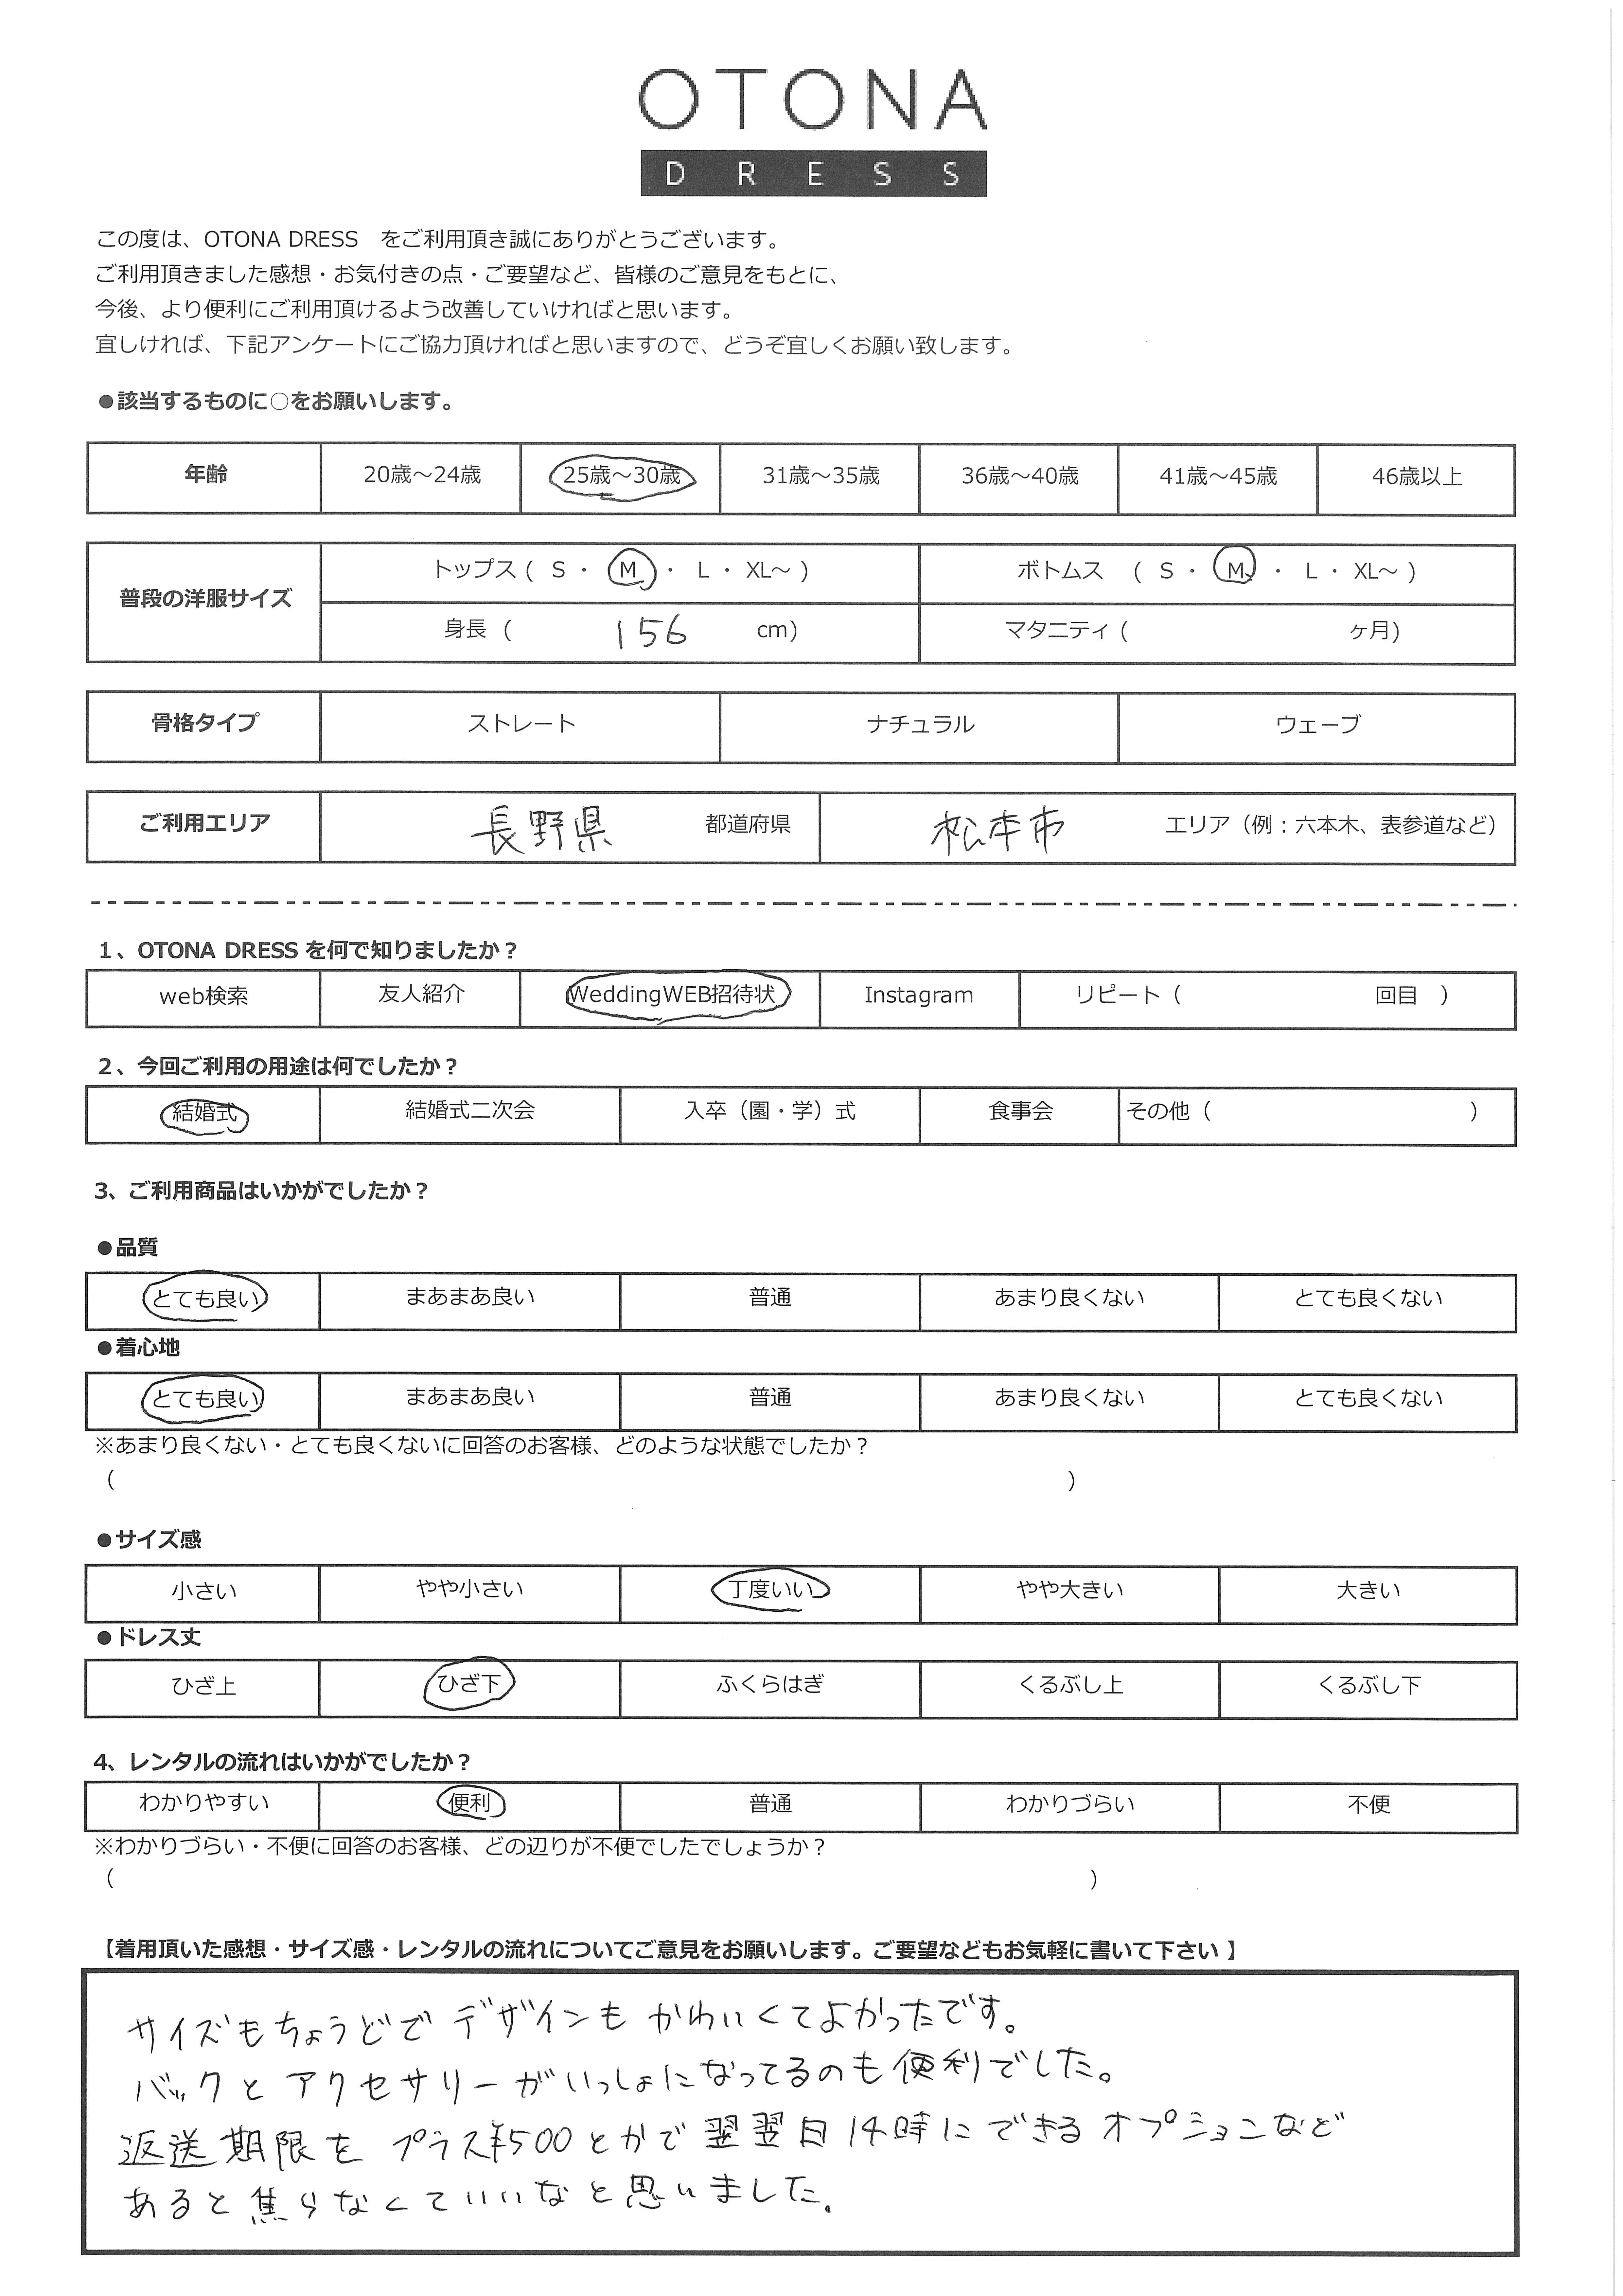 OTONA
DRESS
この度は、OTONA DRESS　をご利用頂き誠にありがとうございます。
ご利用頂きました感想・お気付きの点・ご要望など、皆様のご意見をもとに、
今後、より便利にご利用頂けるよう改善していければと思います。
宜しければ、下記アンケートにご協力頂ければと思いますので、どうぞ宜しくお願い致します。
●該当するものに○をお願いします。
年齢 20歳～24歳 25歳～30歳 31歳～35歳 36歳～40歳 41歳～45歳 46歳以上
普段の洋服サイズ トップス ( S ・ M ・ L ・ XL～ ) ボトムス ( S ・ M ・ L ・ XL～ )
身長 ( 156 cm) マタニティ ( ヶ月)
骨格タイプ ストレート ナチュラル ウェーブ
ご利用エリア 長野県 都道府県 松本市 エリア（例：六本木、表参道など）
1、OTONA DRESS を何で知りましたか？
web検索 友人紹介 WeddingWEB招待状 Instagram リピート（ 回目 ）
2、今回ご利用の用途は何でしたか？
結婚式 結婚式二次会 入卒（園・学）式 食事会 その他（ ）
3、ご利用商品はいかがでしたか？
●品質
とても良い まあまあ良い 普通 あまり良くない とても良くない
●着心地
とても良い まあまあ良い 普通 あまり良くない とても良くない
※あまり良くない・とても良くないに回答のお客様、どのような状態でしたか？
（ ）
●サイズ感
小さい やや小さい 丁度いい やや大きい 大きい
●ドレス丈
ひざ上 ひざ下 ふくらはぎ くるぶし上 くるぶし下
4、レンタルの流れはいかがでしたか？
わかりやすい 便利 普通 わかりづらい 不便
※わかりづらい・不便に回答のお客様、どの辺りが不便でしたでしょうか？
（ ）
【着用頂いた感想・サイズ感・レンタルの流れについてご意見をお願いします。ご要望などもお気軽に書いて下さい 】
サイズもちょうどで デザインも かわいくてよかったです。
バックと アクセサリーがいっしょになってるのも便利でした。
返送期限を プラス¥500とかで 翌翌日14時に できる オプションなど
あると焦らなくていいなと思いました。